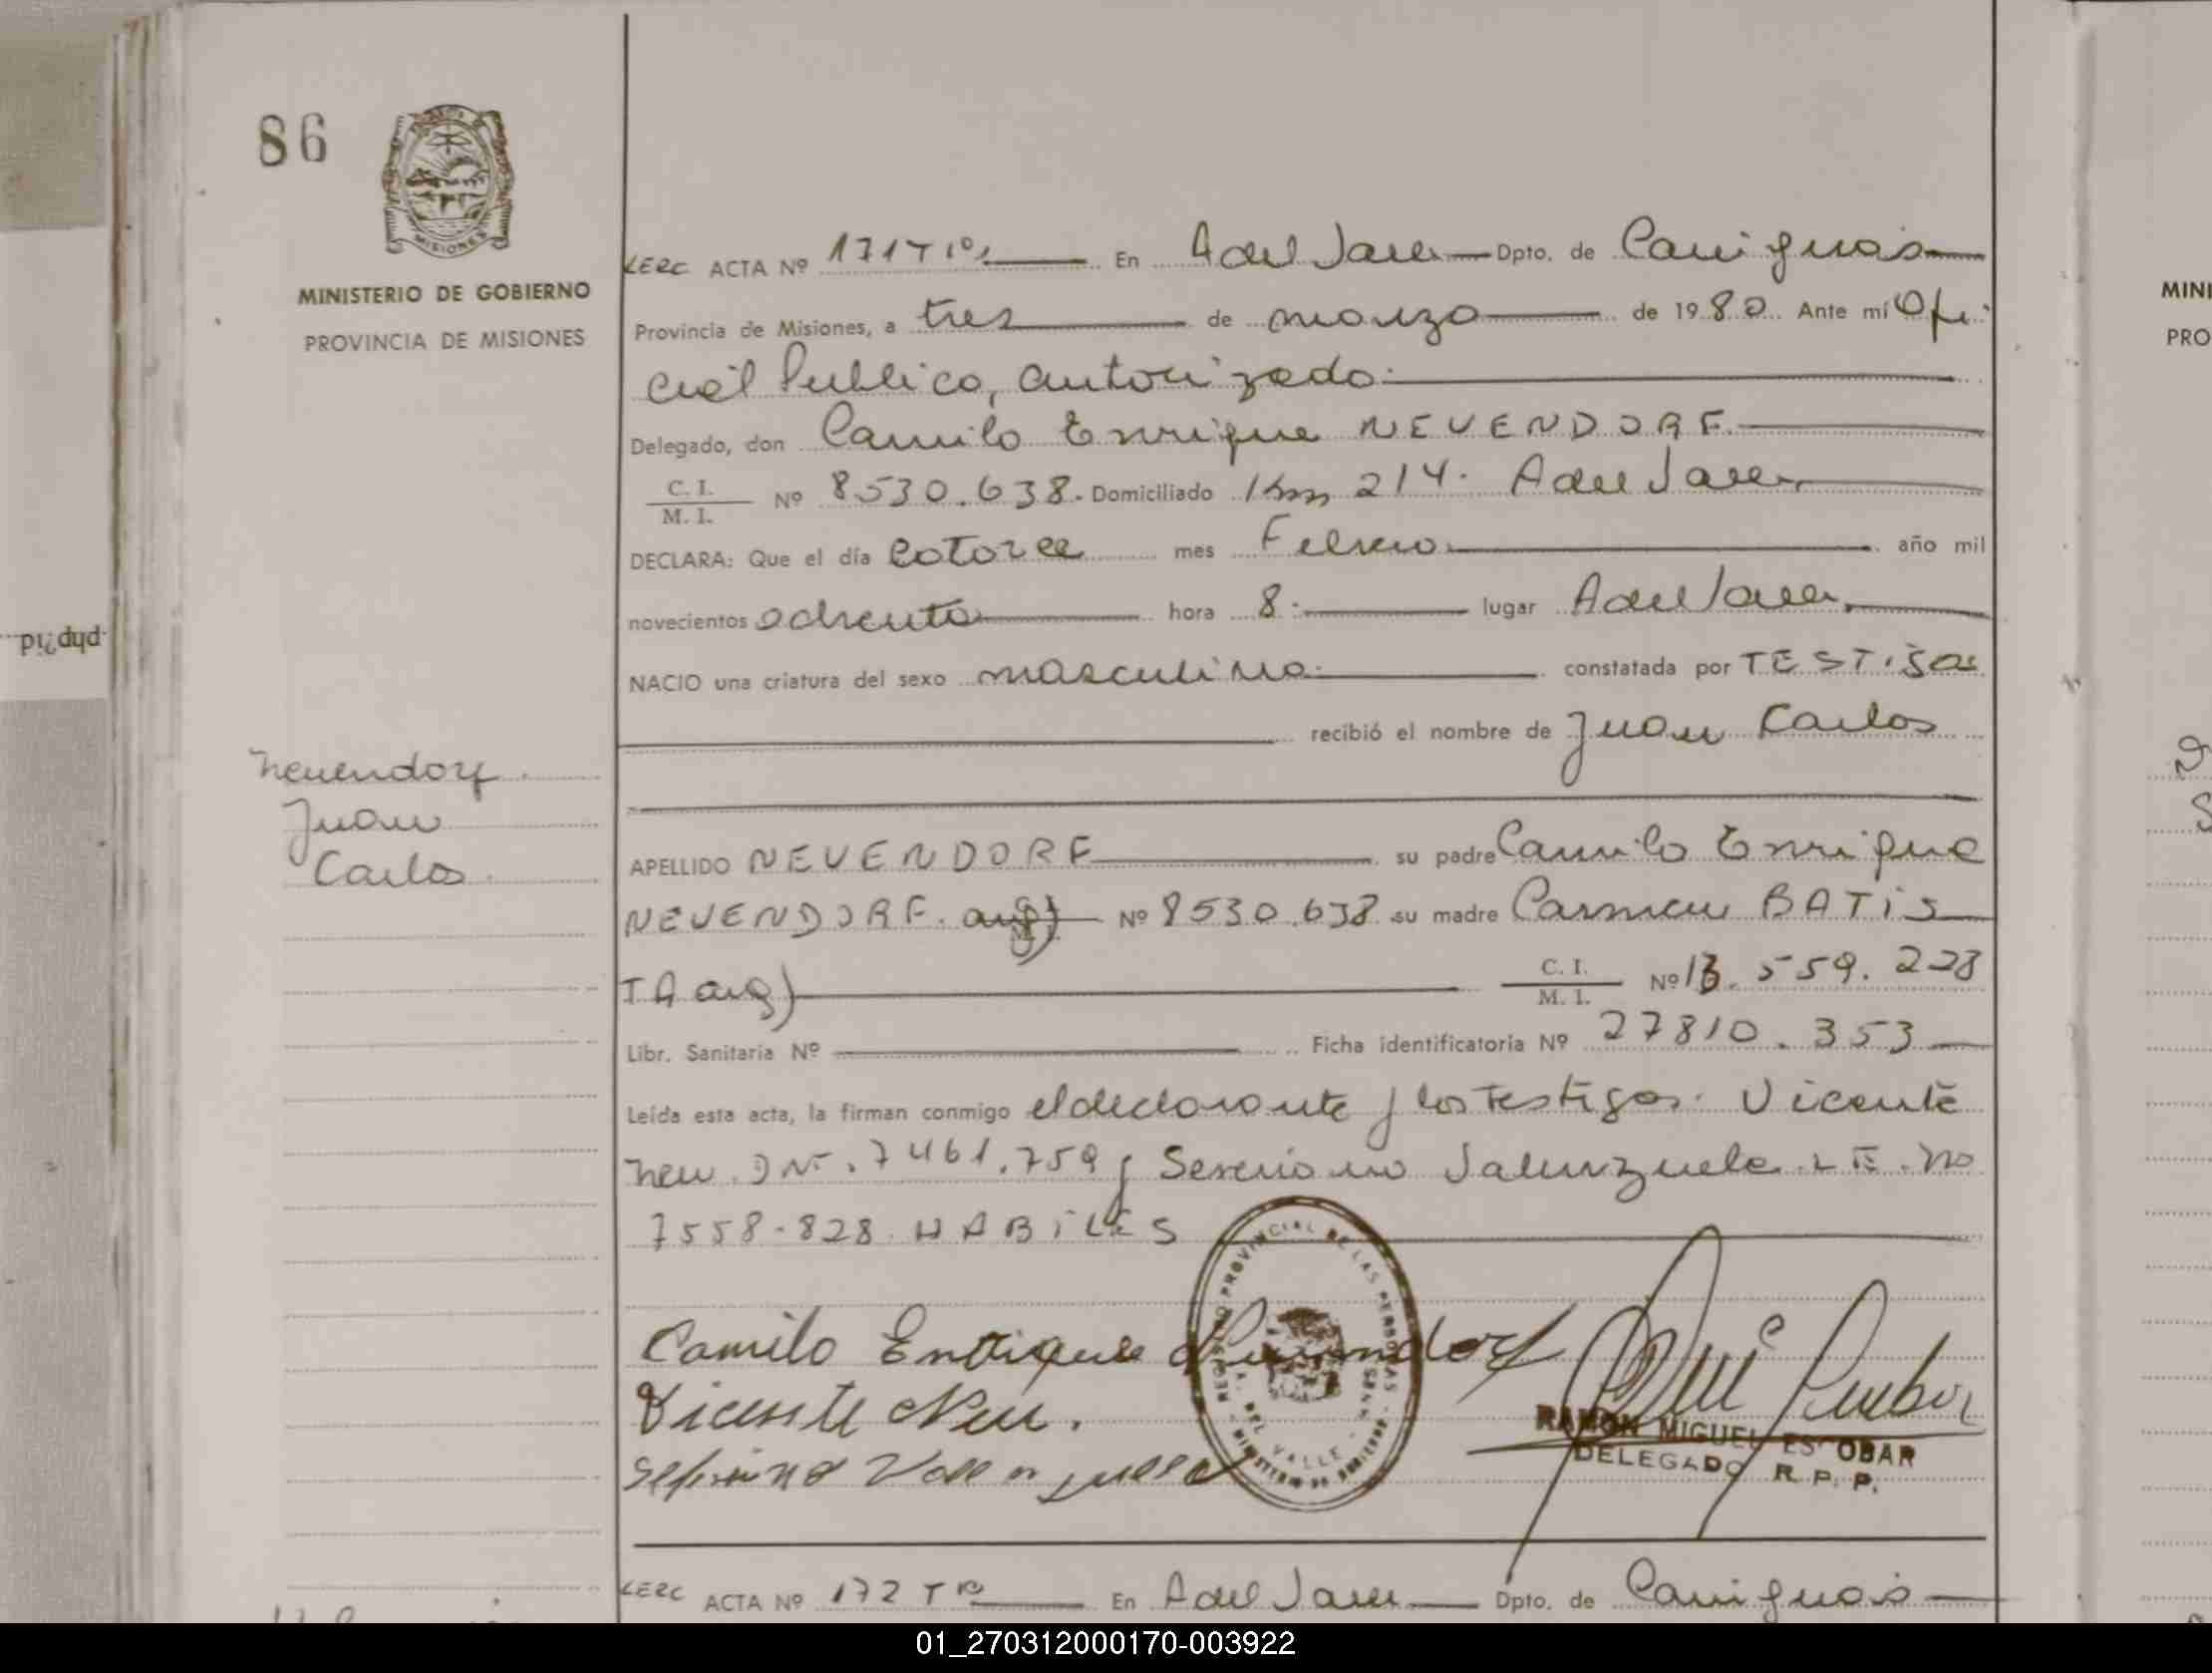 86
MISIONES
MINISTERIO DE GOBIERNO
PROVINCIA DE MISIONES
Neuendorf
Juan
Carlos
LERC ACTA Nº 171 Tº1 En A del Valle Dpto. de Cainguás
Provincia de Misiones, a tres de marzo de 1980. Ante mí Ofi
cial Publico, autorizado.
Delegado, don Camilo Enrique NEUENDORF
C. I. / M. I. Nº 8530.638. Domiciliado Km 214. A del Valle
DECLARA: Que el día catorce mes Febrero año mil
novecientos ochenta hora 8. lugar A del Valle
NACIO una criatura del sexo masculino. constatada por TESTigos
recibió el nombre de Juan Carlos
APELLIDO NEUENDORF su padre Camilo Enrique
NEUENDORF. arg) Nº 8530.638 su madre Carmen BATIS
TA arg) C. I. / M. I. Nº 13.559.228
Libr. Sanitaria Nº Ficha identificatoria Nº 27810.353
Leída esta acta, la firman conmigo el declarante y los Testigos. Vicente
Neu. DNI. 7461.759 y Severiano Valenzuela L E. No
7558-828 HABILES
Camilo Enrique Neuendorf
Vicente Neu.
REGISTRO PROVINCIAL DE LAS PERSONAS
A. DEL VALLE
MINISTERIO DE GOBIERNO
RAMON MIGUEL ESCOBAR
DELEGADO R. P. P.
LERC ACTA Nº 172 Tº En A del Valle Dpto. de Cainguás
php?id
MINI
PRO
01_270312000170-003922